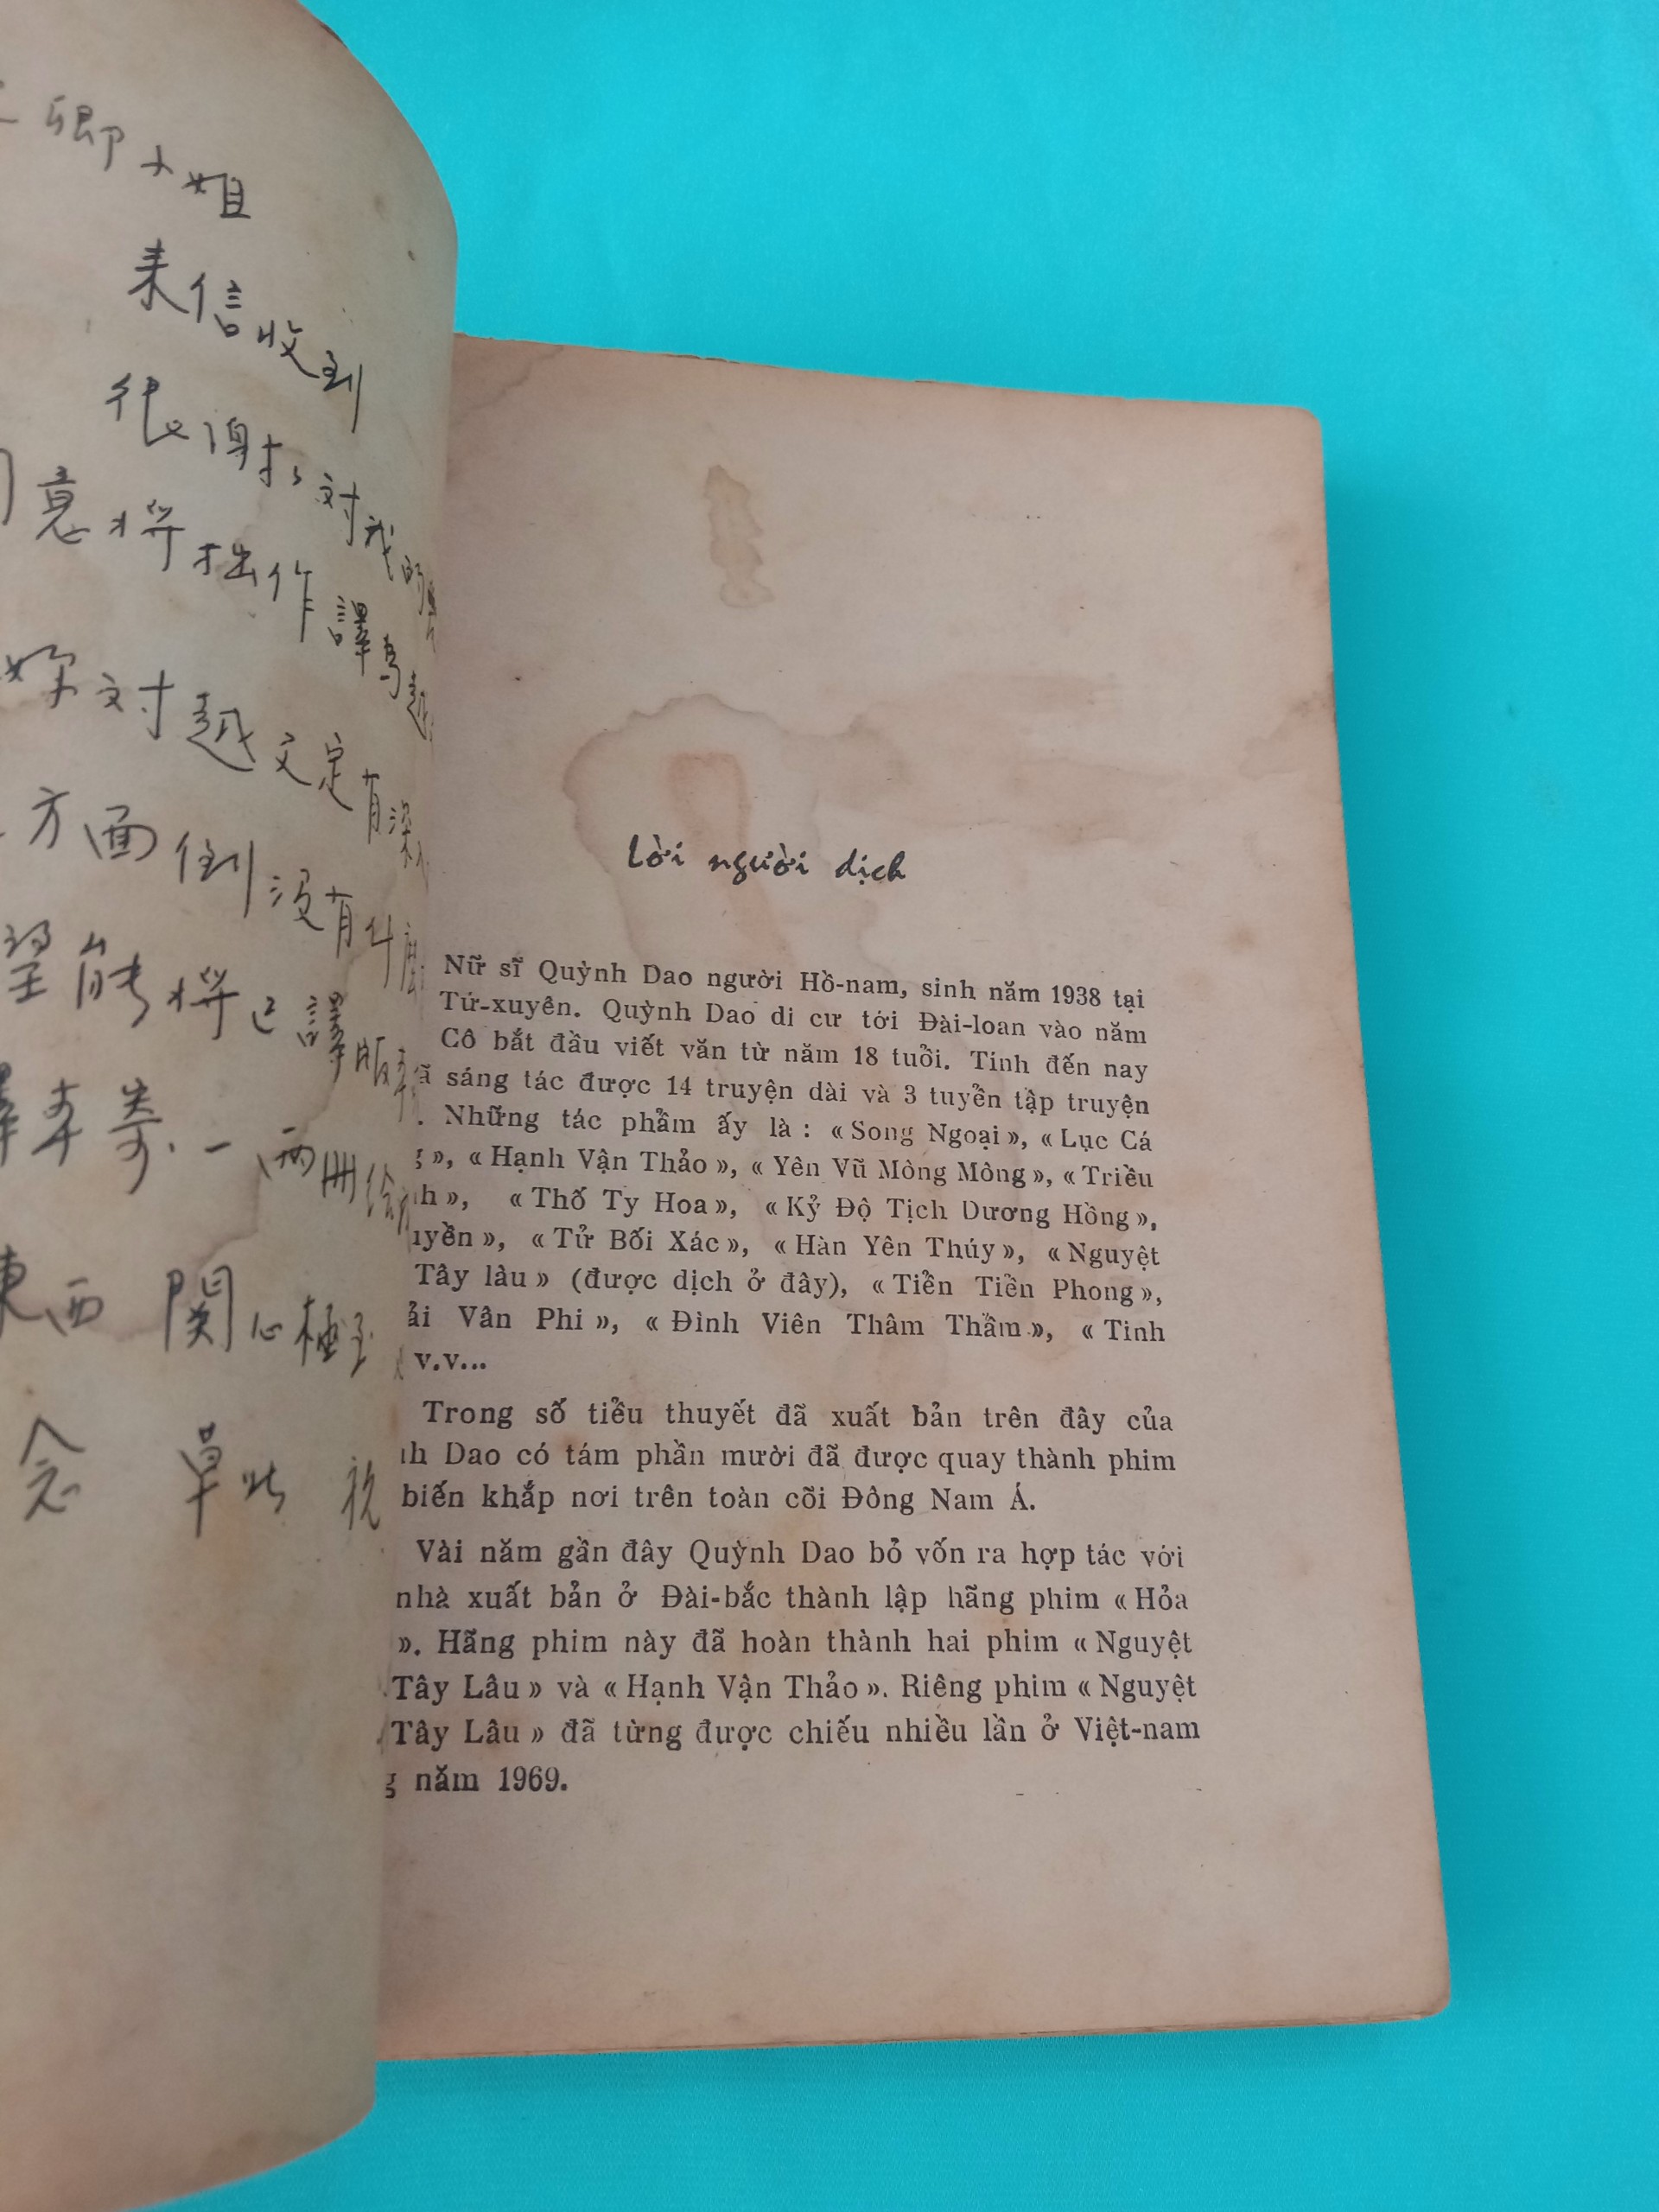 卿小姐
来信收到
很謝謝对我的
意將拙作譯為越
妳对越文定有深
方面倒没有什麽
望能將已譯版
本寄一兩册給
東西 関心極
念 草此 祝
Lời người dịch
Nữ sĩ Quỳnh Dao người Hồ-nam, sinh năm 1938 tại
Tứ-xuyên. Quỳnh Dao di cư tới Đài-loan vào năm
Cô bắt đầu viết văn từ năm 18 tuổi. Tính đến nay
sáng tác được 14 truyện dài và 3 tuyển tập truyện
. Những tác phẩm ấy là : « Song Ngoại », « Lục Cá
», « Hạnh Vận Thảo », « Yên Vũ Mông Mông », « Triều
h », « Thố Ty Hoa », « Kỷ Độ Tịch Dương Hồng »,
uyền », « Tử Bối Xác », « Hàn Yên Thúy », « Nguyệt
Tây lâu » (được dịch ở đây), « Tiễn Tiễn Phong »,
ải Vân Phi », « Đình Viên Thâm Thẩm », « Tinh
v.v...
Trong số tiểu thuyết đã xuất bản trên đây của
h Dao có tám phần mười đã được quay thành phim
biến khắp nơi trên toàn cõi Đông Nam Á.
Vài năm gần đây Quỳnh Dao bỏ vốn ra hợp tác với
nhà xuất bản ở Đài-bắc thành lập hãng phim « Hỏa
». Hãng phim này đã hoàn thành hai phim « Nguyệt
Tây Lâu » và « Hạnh Vận Thảo ». Riêng phim « Nguyệt
Tây Lâu » đã từng được chiếu nhiều lần ở Việt-nam
g năm 1969.